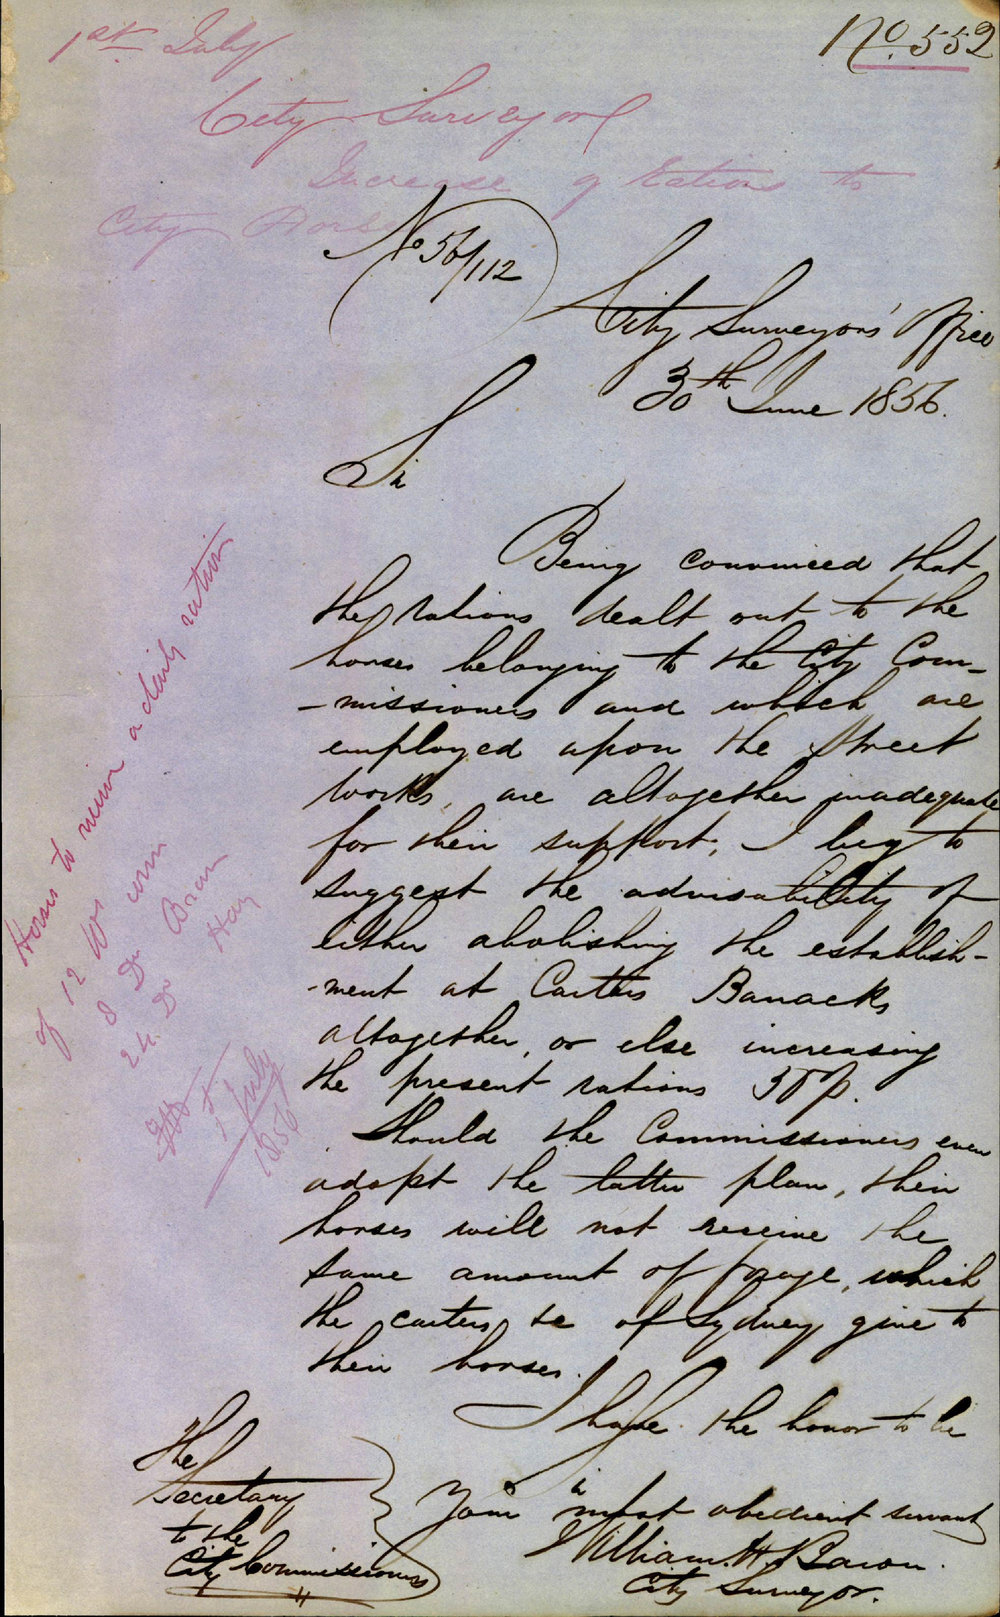 1st July
No. 552
City Surveyor
Increase of Rations to
City Horses
No 56/112
City Surveyors' Office
30th June 1856.
Sir
Being convinced that
the rations dealt out to the
horses belonging to the City Com-
-missioners and which are
employed upon the Street
Works, are altogether inadequate
for their support, I beg to
suggest the advisability of
either abolishing the establish-
-ment at Carters Barracks
altogether, or else increasing
the present rations
Should the Commissioners even
adopt the latter plan, their
horses will not receive the
same amount of forage, which
the carters &c of Sydney give to
their horses.
I have the honor to be
Sir
Your most obedient servant
William H. Baron.
City Surveyor.
The
Secretary
to the
City Commissioners
Horses to receive a daily ration
of 12 lbs corn
8 Do Bran
24 Do Hay
1 July
1856